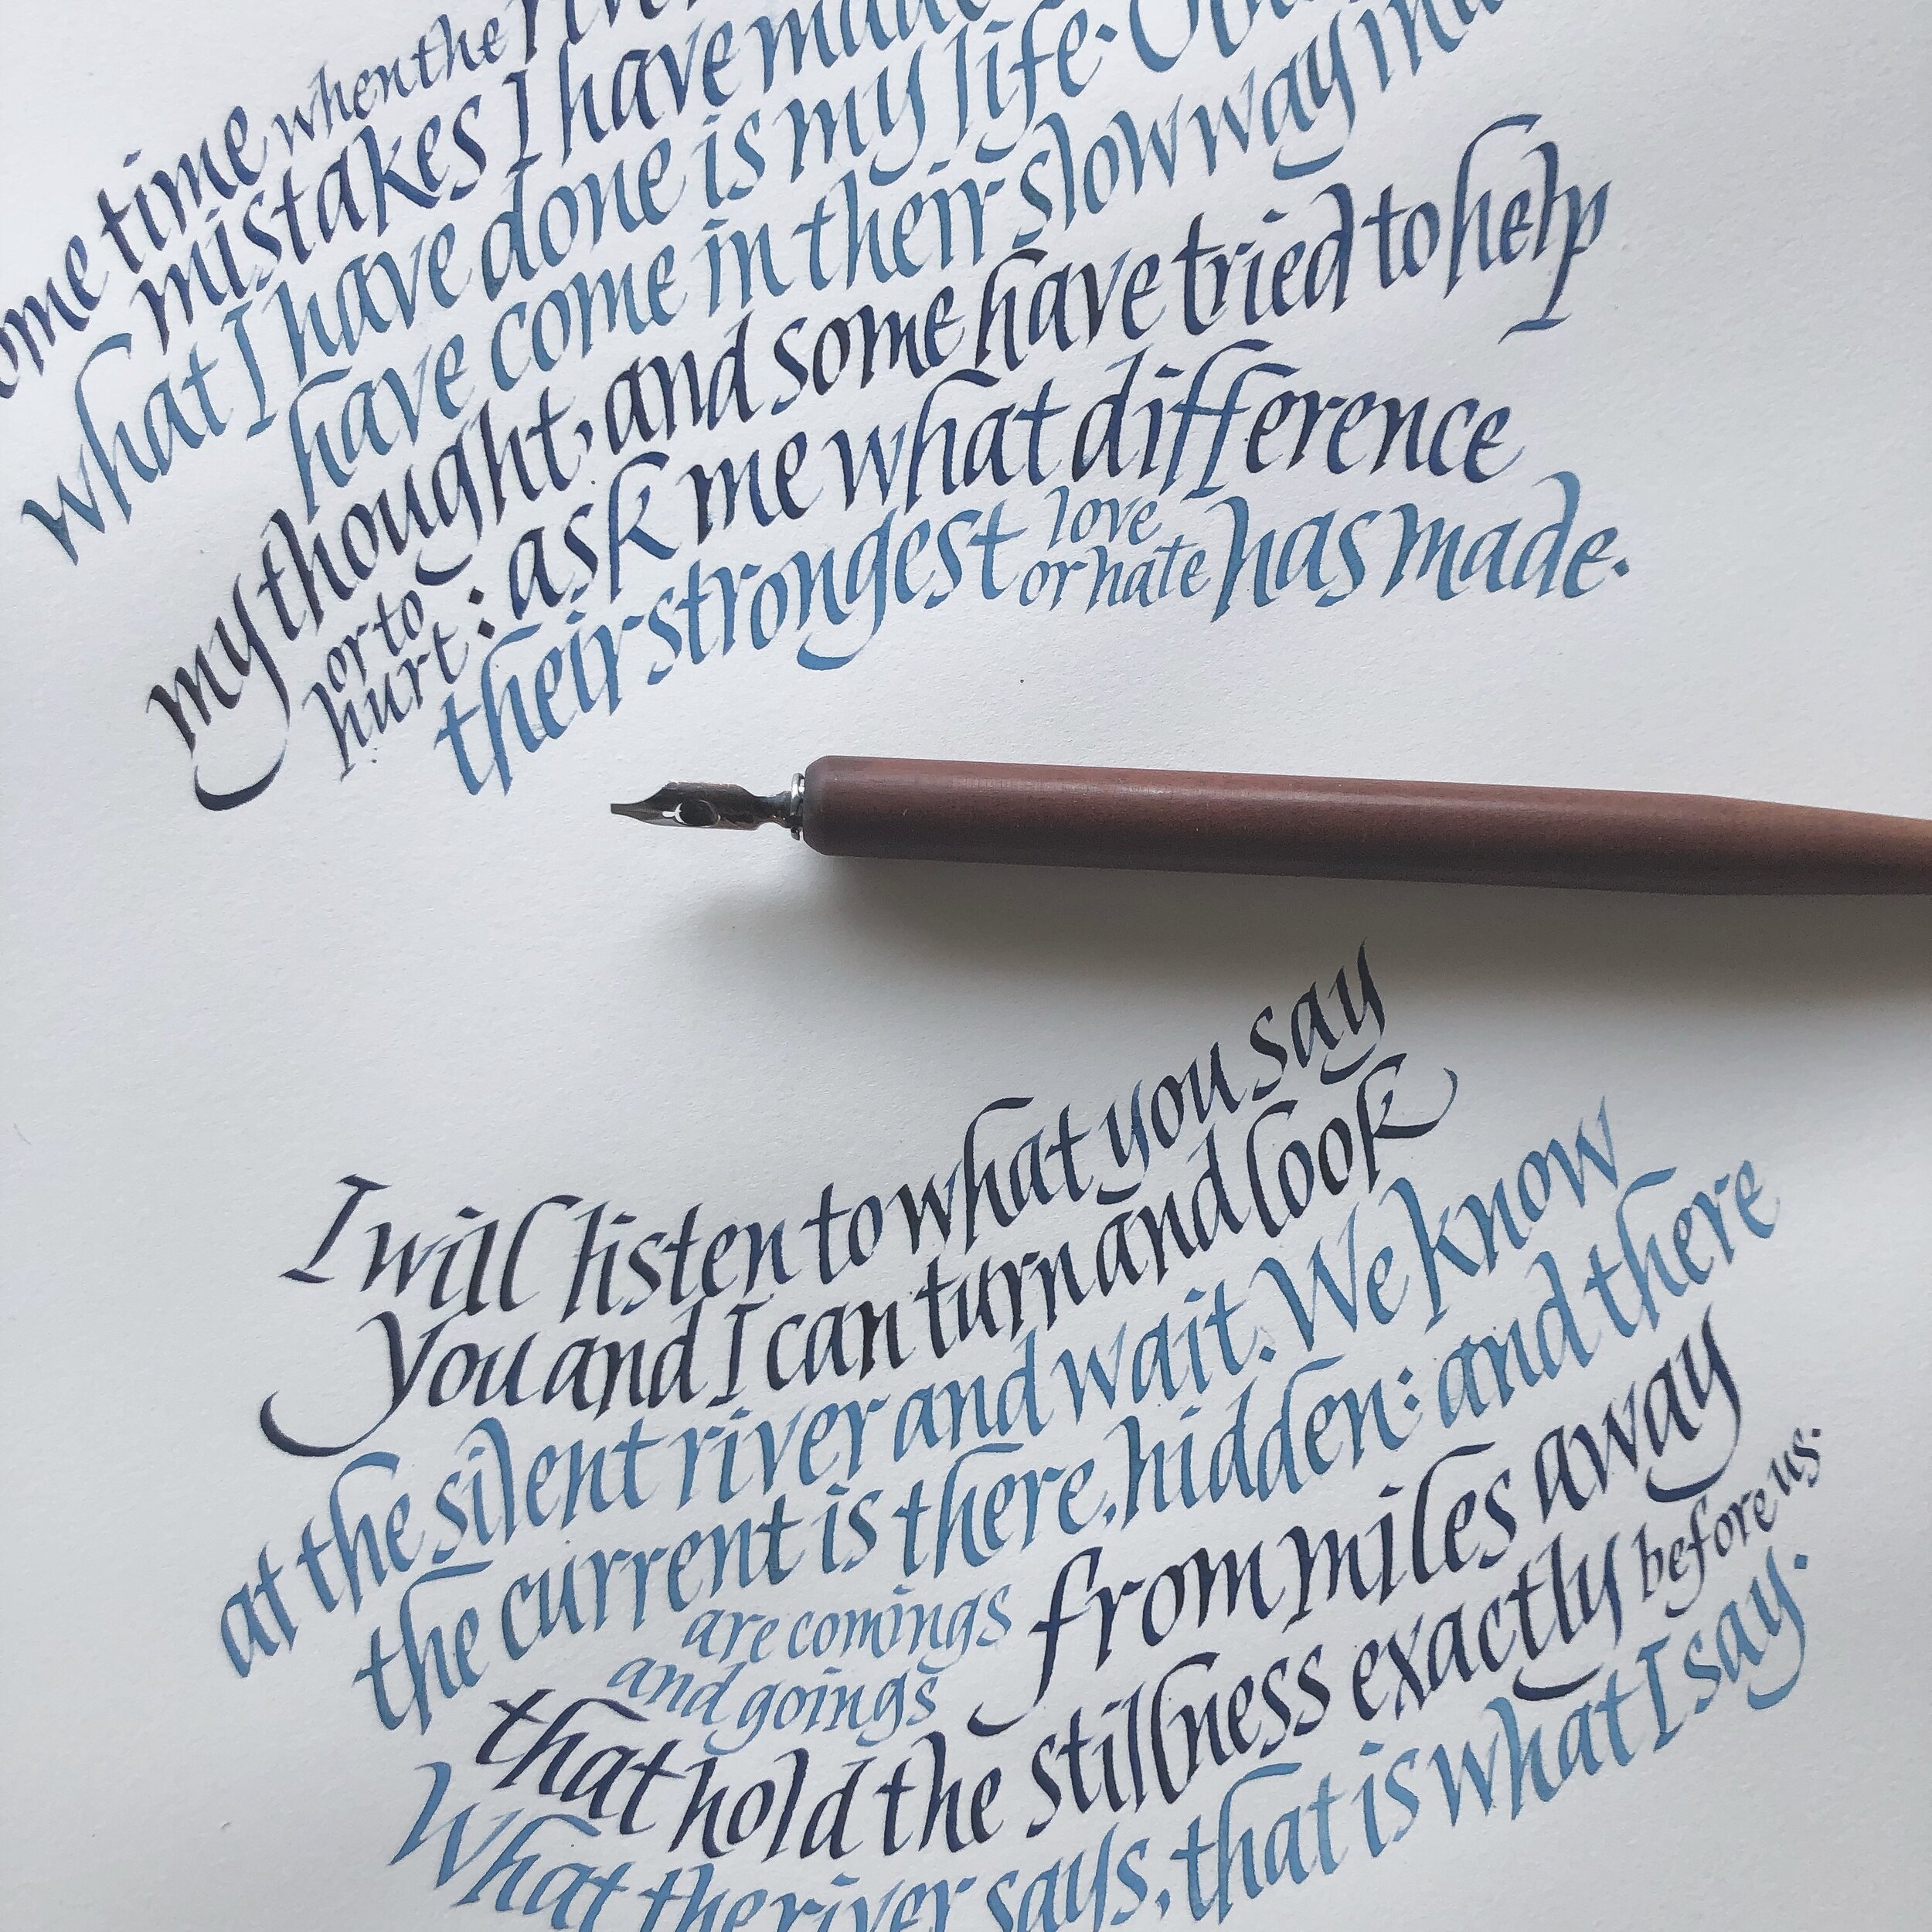 ome time when the
mistakes I have made
what I have done is my life.
have come in their slow way in
my thought, and some have tried to help
or to
hurt : ask me what difference
their strongest love
or hate has made.
I will listen to what you say
You and I can turn and look
at the silent river and wait. We know
the current is there, hidden: and there
are comings
and goings from miles away
that hold the stillness exactly before us.
What the river says, that is what I say.